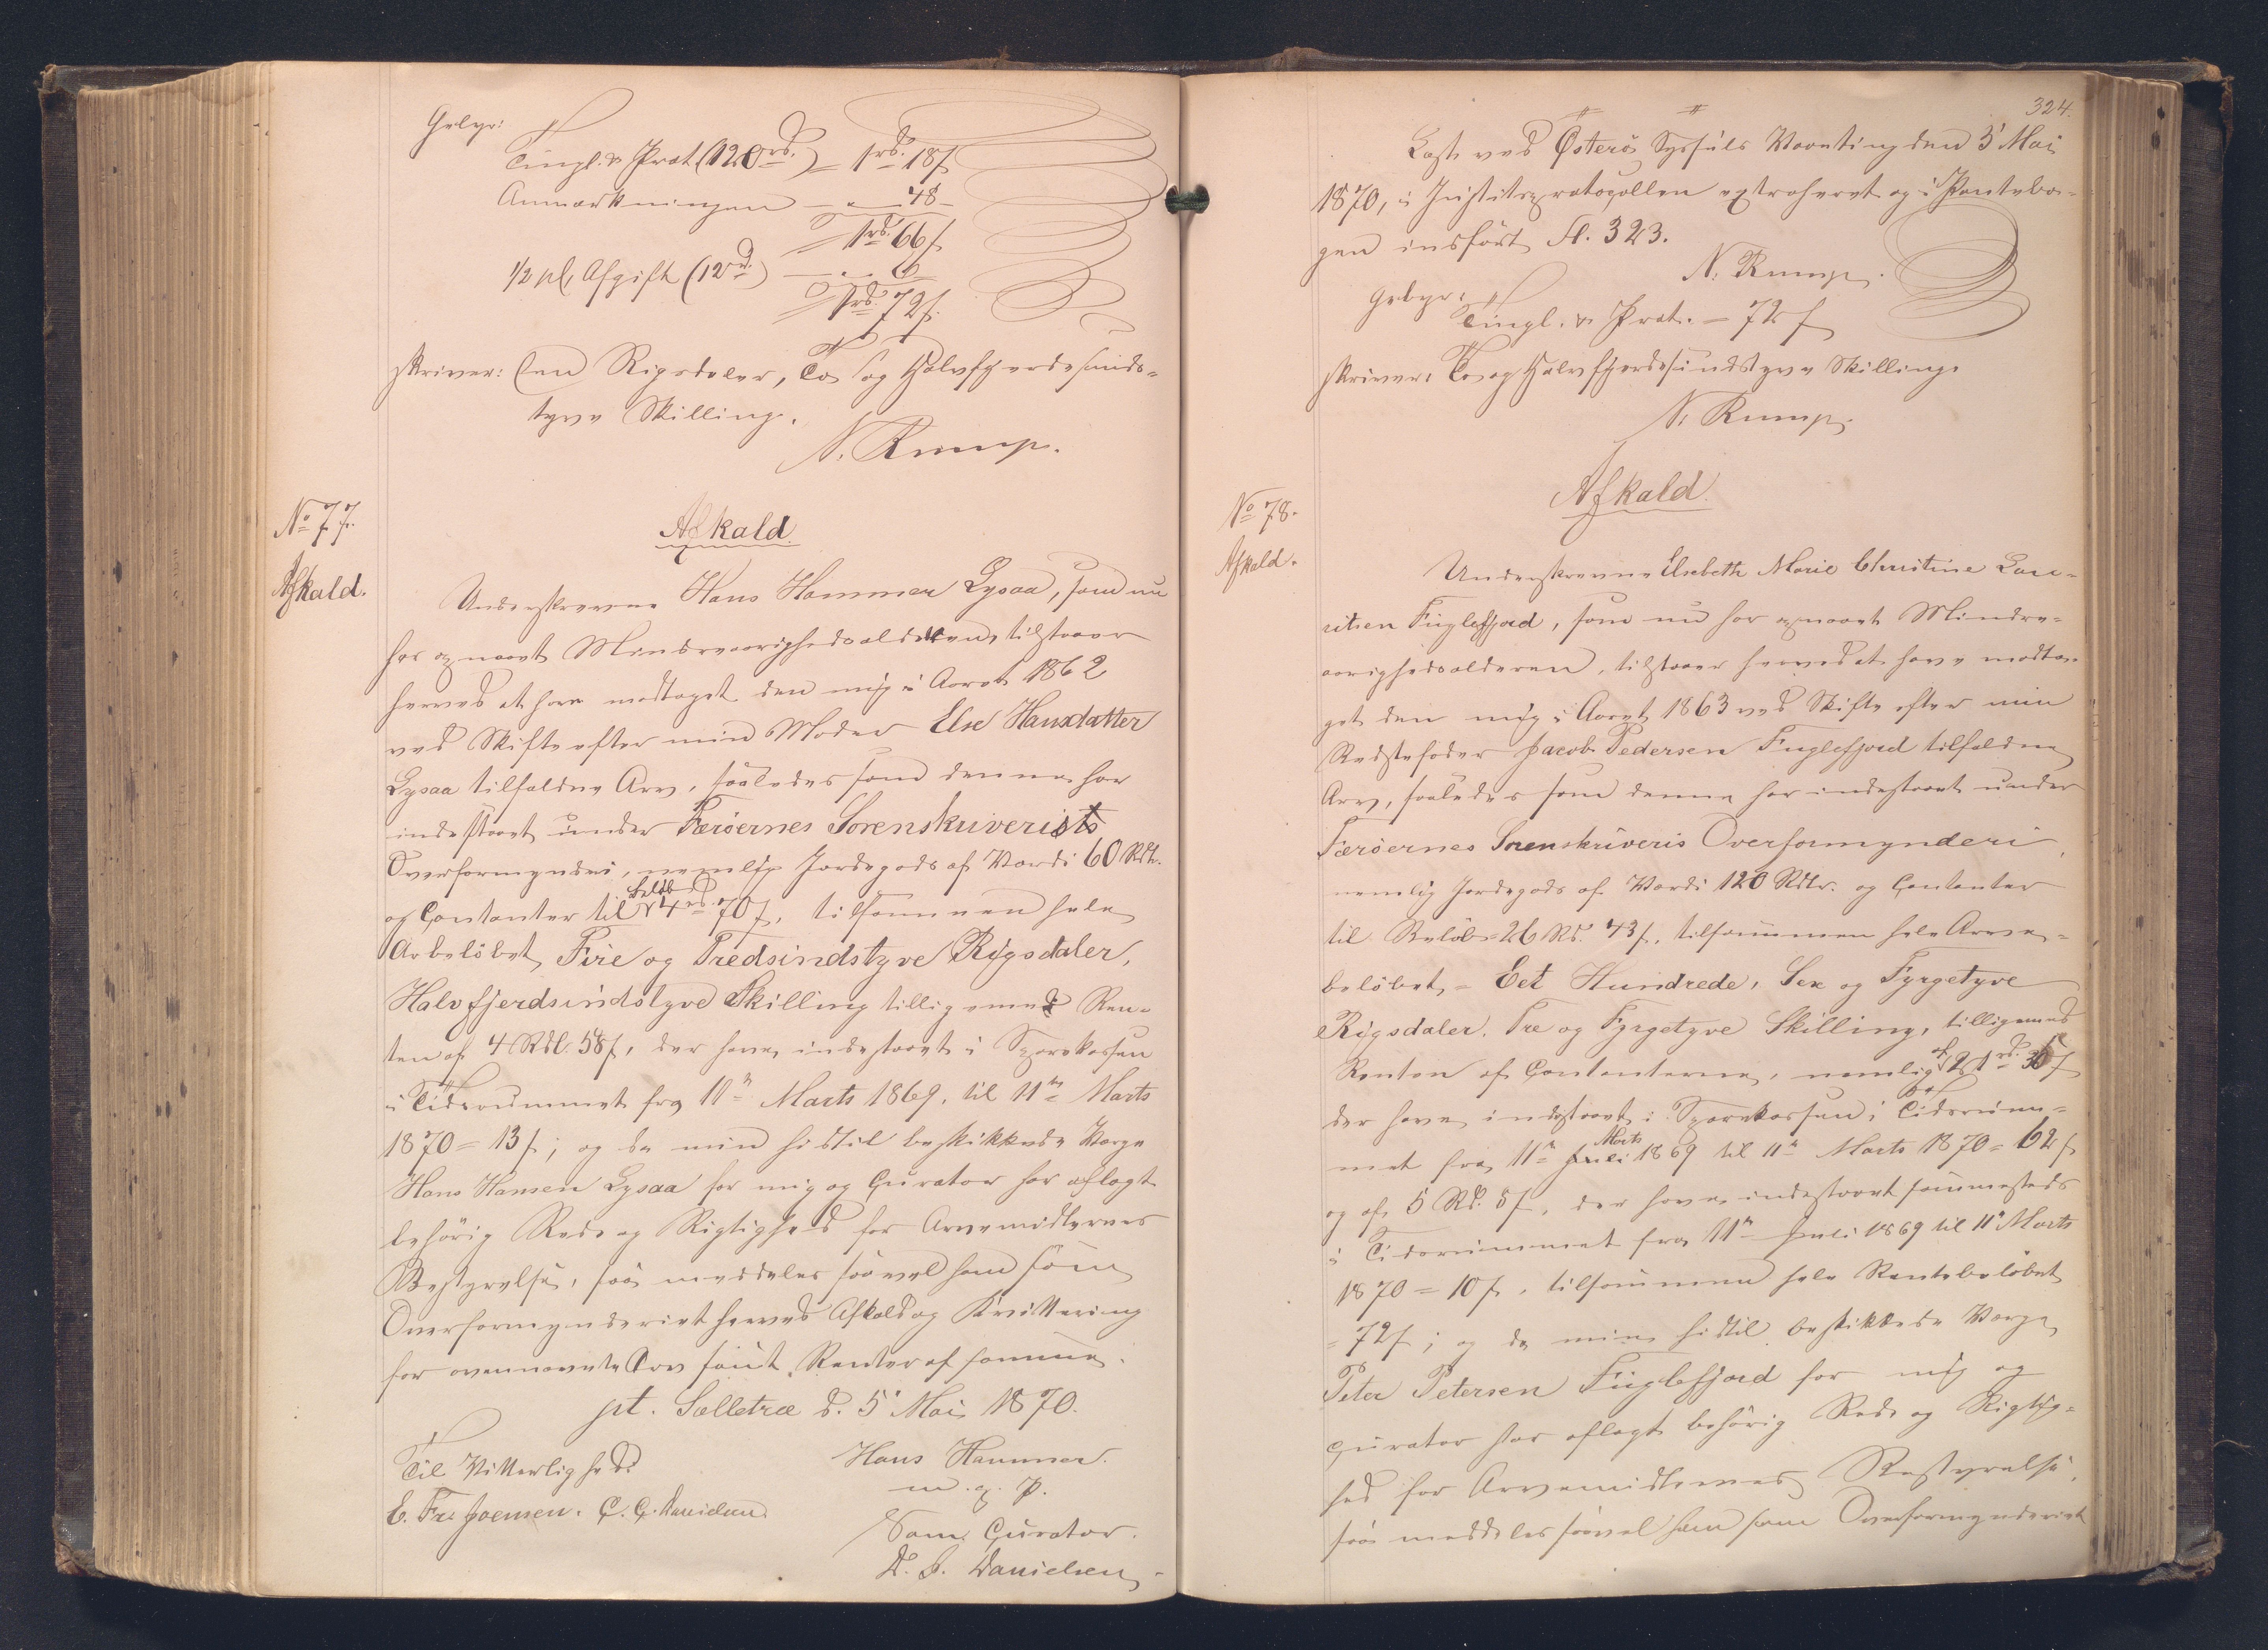 Gebyr:
Tingl. & Prot. (120 rd.) – 1 rd. 18 ſ
Anmærkningen – " – 48 –
1 rd. 66 ſ
1/2 pCt. Afgift (12 rd.) – " – 6
1 rd. 72 ſ.
skriver: Een Rigsdaler, To og Halvfjerdesinds-
tyve Skilling.
N. Rump.
No 77.
Afkald.
Afkald.
Underskrevne Hans Hammer Lysaa, som nu
har opnaaet Mindreaarighedsalderen, tilstaaer
herved at have modtaget den mig i Aaret 1862
ved Skifte efter min Moder Else Hansdatter
Lysaa tilfaldne Arv, saaledes som denne har
indestaaet under Færöernes Sorenskriveris
Overformynderi, nemlig Jordegods af Værdi 60 Rdlr.
og Contanter til Beløb 4 rd. 70 ſ, tilsammen hele
Arbelöbet Fire og Tredsindstyve Rigsdaler,
Halvfjerdsindstyve Skilling tilligemed Ren-
ten af 4 Rdl. 58 ſ, der have indestaaet i Sparekassen
i Tidsrummet fra 11te Marts 1869 til 11te Marts
1870 = 13 ſ; og da min hidtil beskikkede Værge
Hans Hansen Lysaa for mig og Curator har aflagt
behörig Rede og Rigtighed for Arvemidlernes
Bestyrelse, saa meddeles saavel ham som
Overformynderiet herved Afkald og Kvittering
for ovennævnte Arv samt Renter af samme.
pt. Selletræ d. 5 Mai 1870.
Til Vitterlighed:
Hans Hammer.
m. f. P.
E. Fr. Joensen. C. C. Danielsen.
Som Curator.
D. J. Danielsen.
324.
Læst ved Österö Syssels Vaarting den 5' Mai
1870, i Justitsprotocollen extraheret og i Pantebo-
gen indfört Fl. 323.
N. Rump.
Gebyr:
Tingl. & Prot. – 72 ſ
skriver: To og Halvfjerdesindstyve Skilling.
N. Rump.
No 78.
Afkald.
Afkald.
Underskrevne Elsebeth Marie Christine Lau-
ritsen Fuglefjord, som nu har opnaaet Mindre-
aarighedsalderen, tilstaaer herved at have modta-
get den mig i Aaret 1863 ved Skifte efter min
Bedstefader Jacob Pedersen Fuglefjord tilfaldne
Arv, saaledes som denne har indestaaet under
Færöernes Sorenskriveris Overformynderi,
nemlig Jordegods af Værdi 120 Rdlr. og Contanter
til Belöb 26 Rd. 43 ſ, tilsammen hele Arve-
belöbet, = Eet Hundrede, Sex og Fyrgetyve
Rigsdaler, Tre og Fyrgetyve Skilling, tilligemed
Renten af Contanterne, nemlig af 21 rd. 36 ſ
der have indestaaet i Sparekassen i Tidsrum-
met fra 11te Marts 1869 til 11te Marts 1870 = 62 ſ
og af 5 Rd. 5 ſ, der have indestaaet sammesteds
i Tidsrummet fra 11te Juli 1869 til 11te Marts
1870 = 10 ſ, tilsammen hele Rentebelöbet
= 72 ſ; og da min hidtil beskikkede Værge
Peter Petersen Fuglefjord for mig og
Curator har aflagt behörig Rede og Rigtig-
hed for Arvemidlernes Bestyrelse,
saa meddeles saavel ham som Overformynderiet